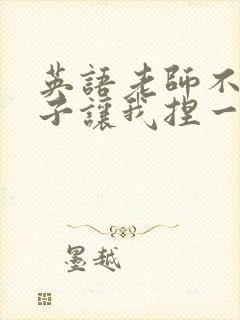 英語老師不
子讓我捏一
墨越